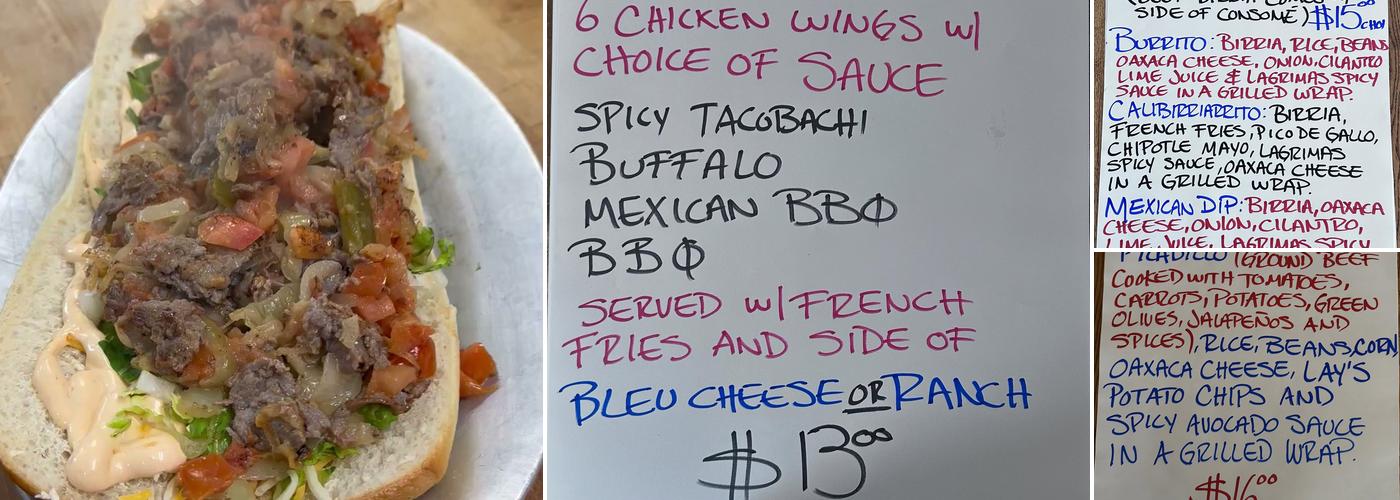 6 CHICKEN WINGS w/
CHOICE OF SAUCE
SPICY TACOBACHI
BUFFALO
MEXICAN BBQ
BBQ
SERVED w/ FRENCH
FRIES AND SIDE OF
BLEU CHEESE OR RANCH
$13.00
SIDE OF CONSOMÉ) $15
BURRITO: BIRRIA, RICE, BEANS
OAXACA CHEESE, ONION, CILANTRO
LIME JUICE & LAGRIMAS SPICY
SAUCE IN A GRILLED WRAP.
CALIBIRRIARRITO: BIRRIA,
FRENCH FRIES, PICO DE GALLO,
CHIPOTLE MAYO, LAGRIMAS
SPICY SAUCE, OAXACA CHEESE
IN A GRILLED WRAP.
MEXICAN DIP: BIRRIA, OAXACA
CHEESE, ONION, CILANTRO,
LIME JUICE, LAGRIMAS SPICY
PICADILLO (GROUND BEEF
COOKED WITH TOMATOES,
CARROTS, POTATOES, GREEN
OLIVES, JALAPEÑOS AND
SPICES), RICE, BEANS, CORN
OAXACA CHEESE, LAY'S
POTATO CHIPS AND
SPICY AVOCADO SAUCE
IN A GRILLED WRAP.
$16.00